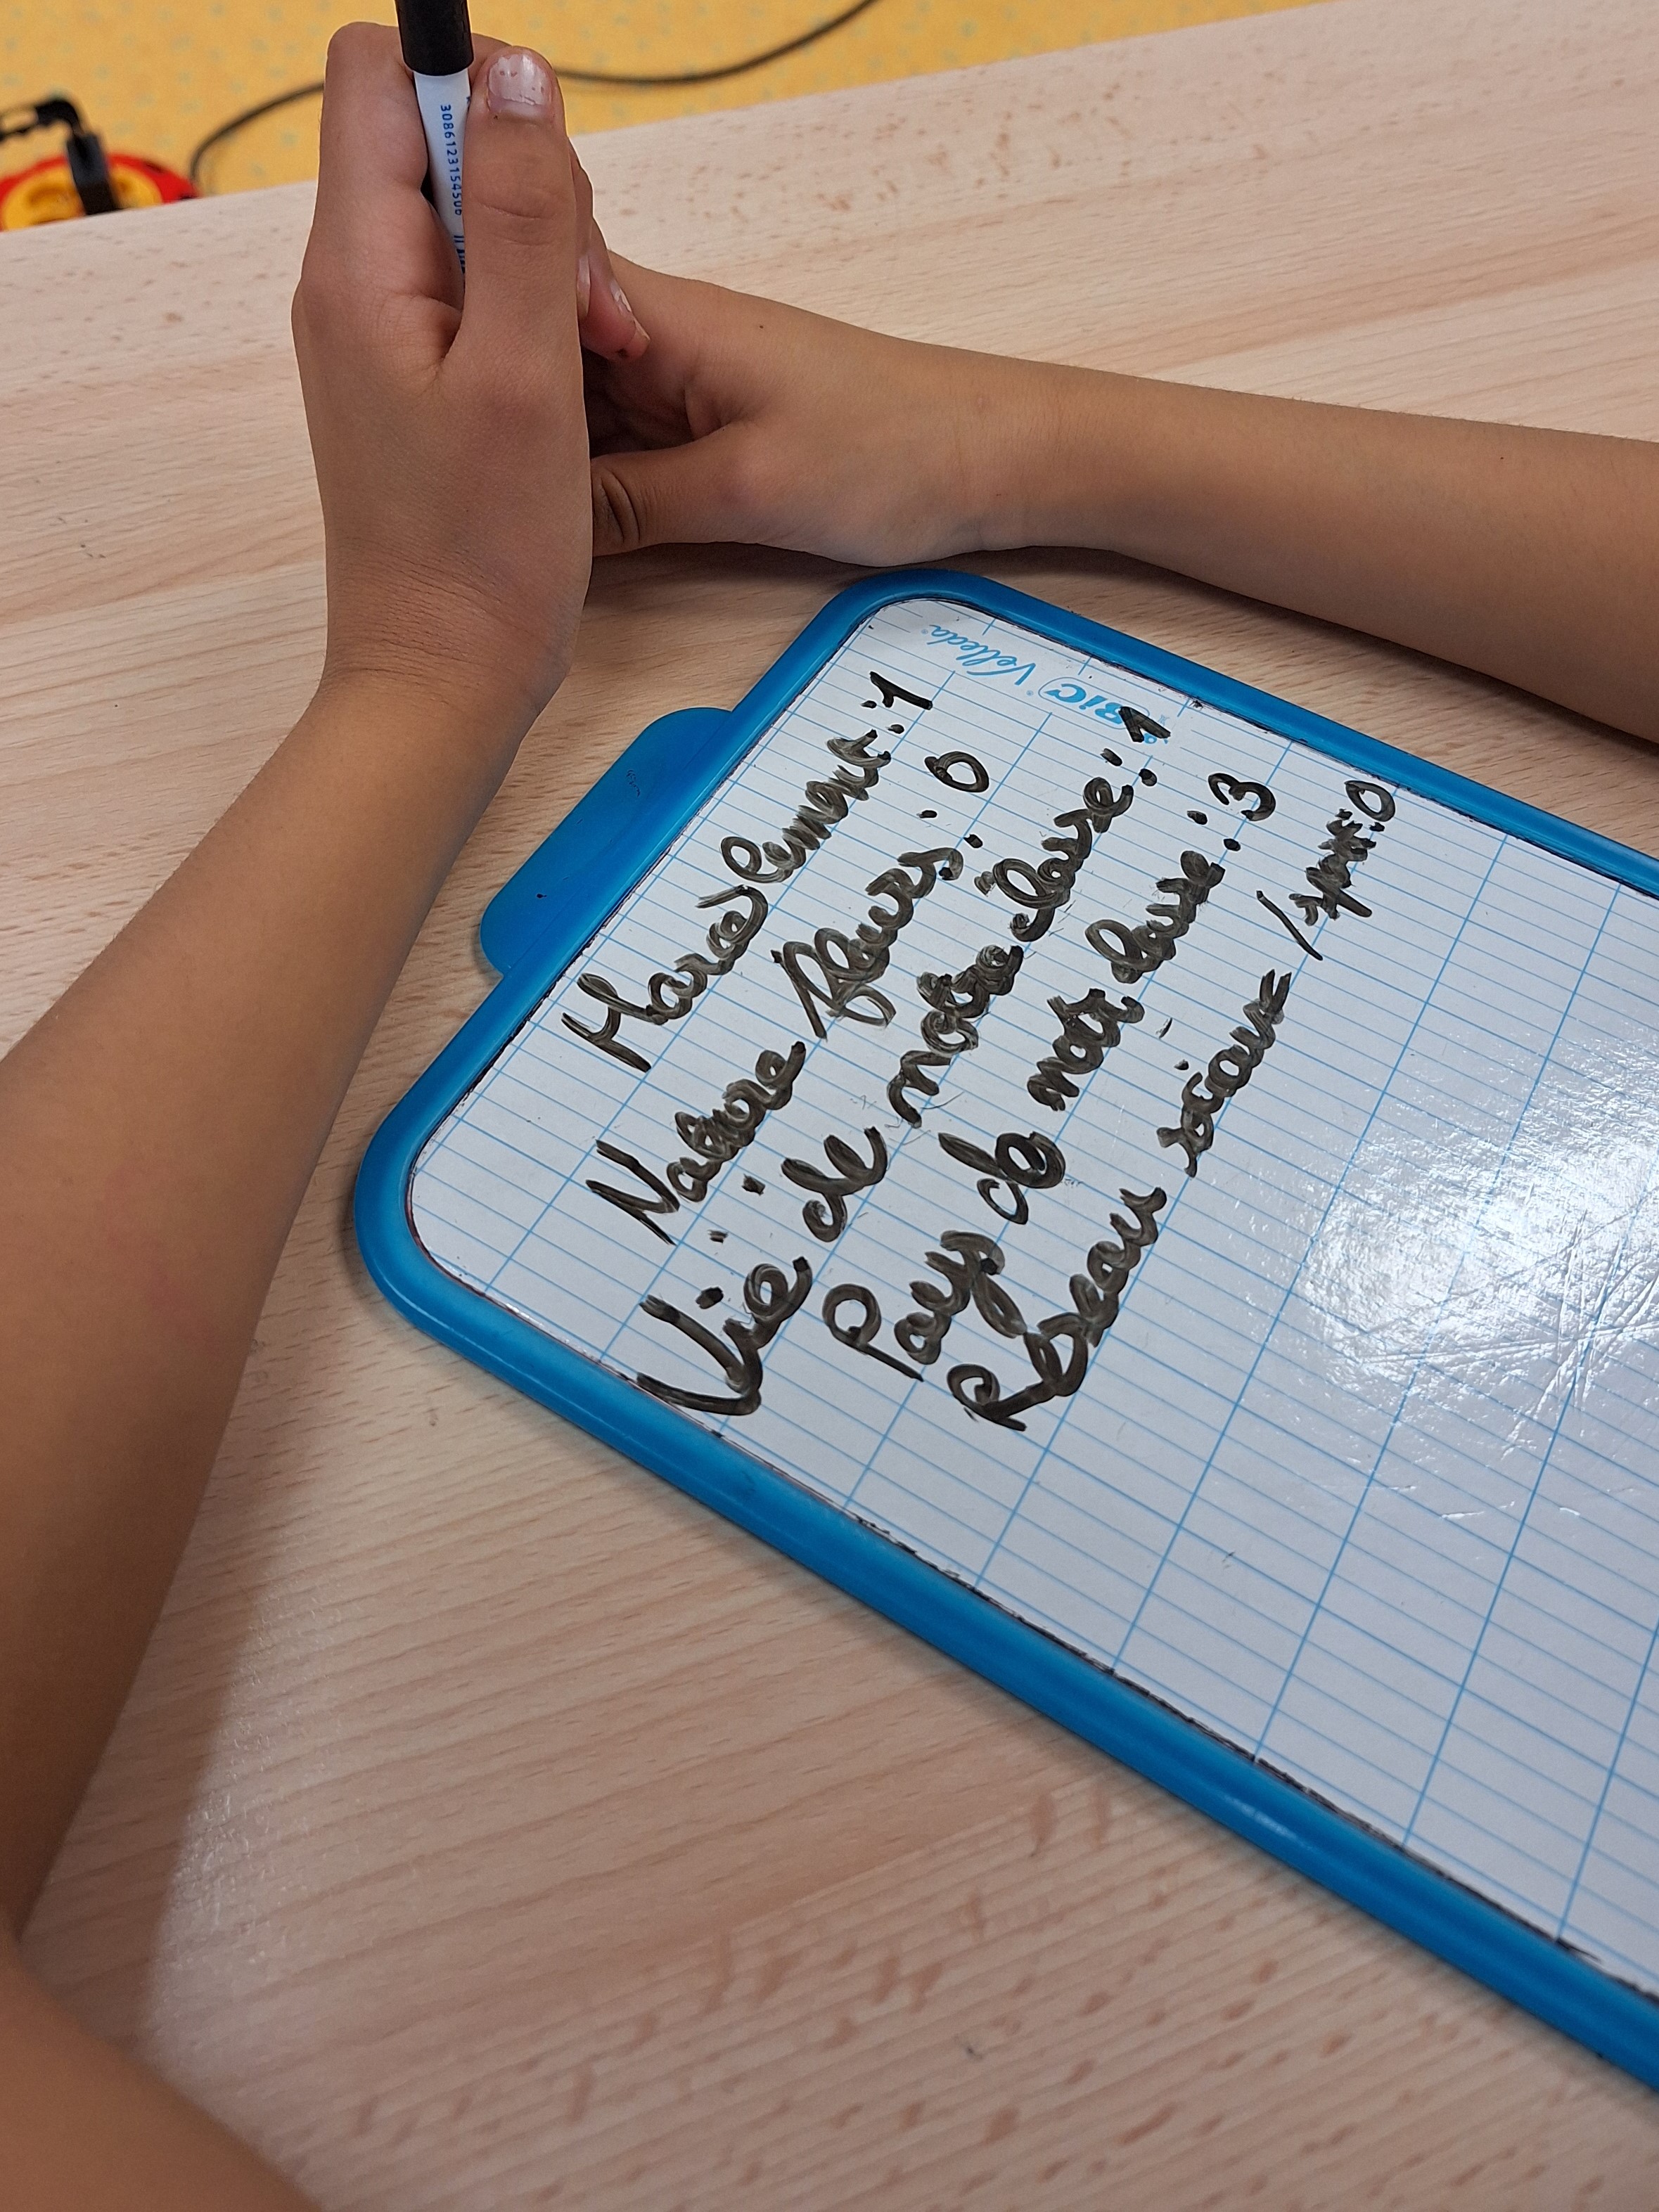 3086123154506
BIC Velleda
Harcelement : 1
Nature fleurs : 0
Vie de notre clase : 1
Pays de : 3
Réseau sociaux / sport : 0